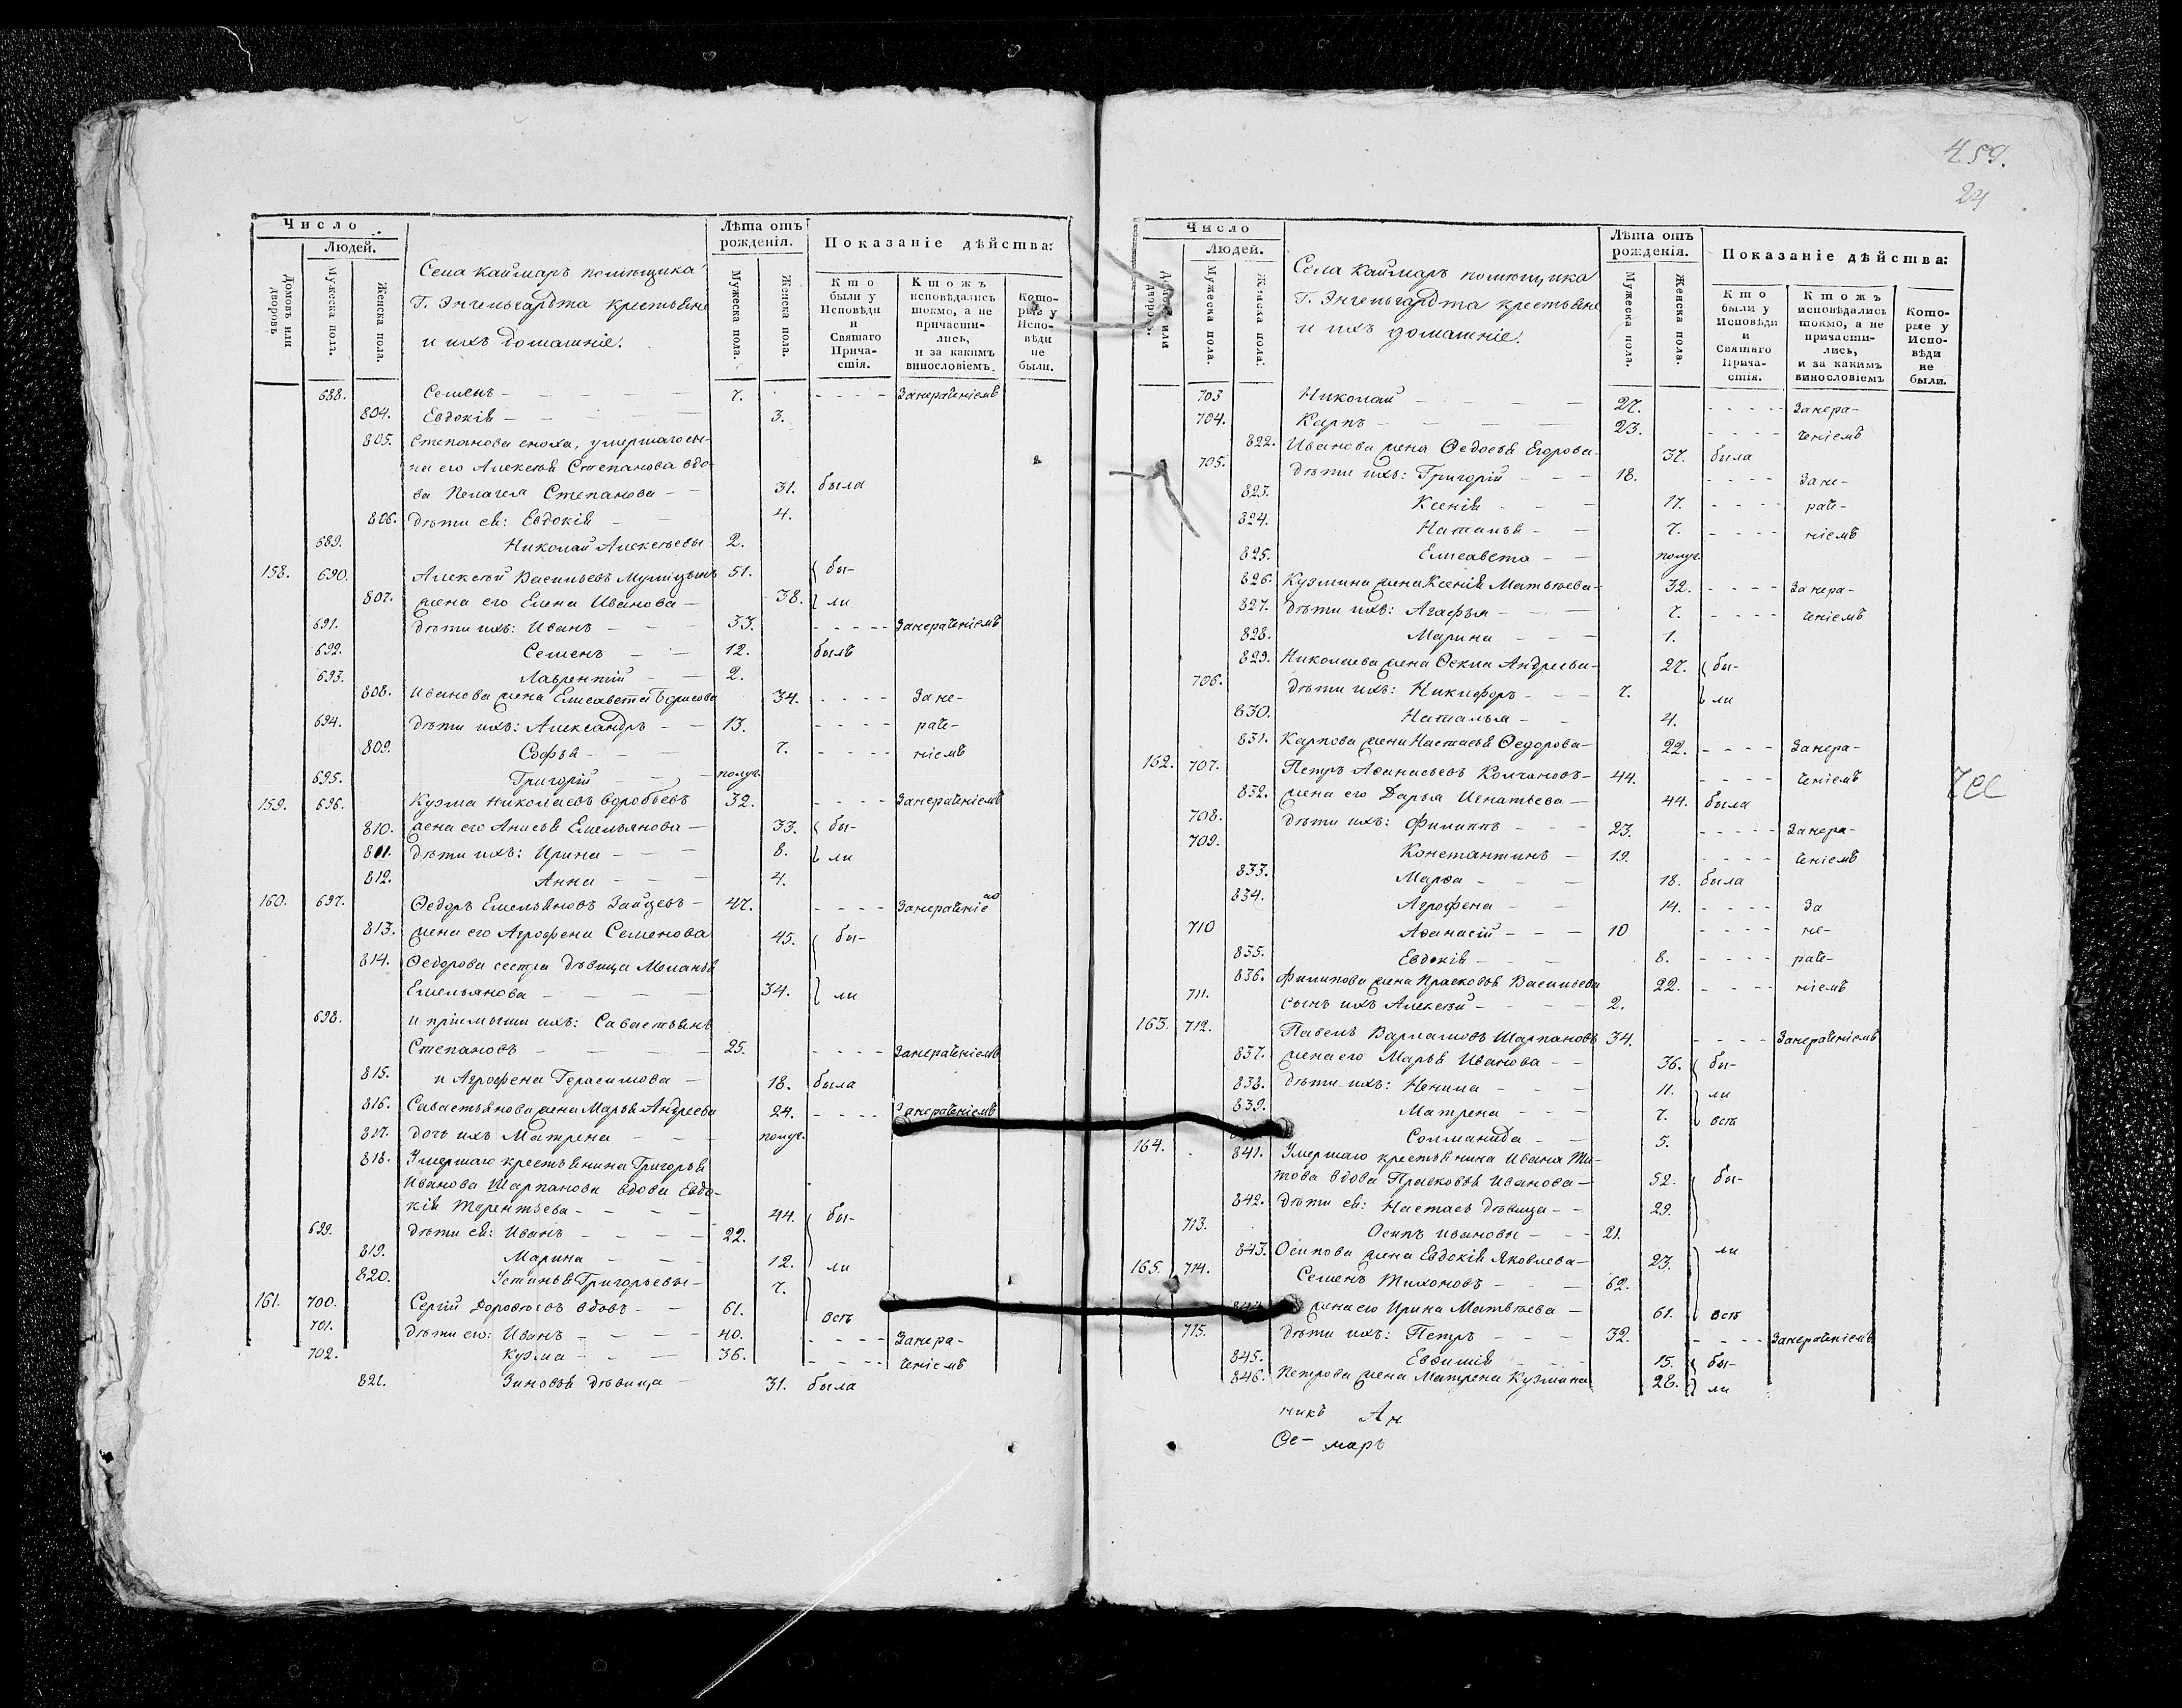 459.
24
Число
Людей.
Домовъ или дворовъ
Мужеска пола.
Женска пола.
Села каймаръ помѣщика
Г. Энгельгардта крестьяне
и ихъ домашніе.
Лѣта отъ рожденія.
Мужеска пола.
Женска пола.
Показаніе дѣйства:
Кто были у Исповѣди и Святаго Причастія.
Ктожъ исповѣдались токмо, а не причастились, и за какимъ винословіемъ.
Которые у Исповѣди не были.
688. Семенъ — 7. - - - - Занераченіемъ
804. Евдокія — 3.
805. Степанова сноха, умершаго сы-
на его Алексѣя Степанова вдо-
ва Пелагея Степанова — 31. была
806. дѣти ея: Евдокія — 4.
689. Николай Алексѣевы 2.
158. 690. Алексѣй Васильевъ 51. бы-
807. жена его Елена Иванова — 38. ли
691. дѣти ихъ: Иванъ — 33. - - - - Занераченіемъ
692. Семенъ — 12. былъ
693. Лаврентій — 2.
808. Иванова жена Елисавета Борисова 34. - - - - Зане-
694. дѣти ихъ: Александръ — 13. - - - - раче-
809. Софья — 7. - - - - ніемъ
695. Григорій — полуг.
159. 696. Кузма Николаевъ Воробьевъ 32. - - - - Занераченіемъ
810. жена его Анисья Емельянова — 33. бы-
811. дѣти ихъ: Ирина — 8. ли
812. Анна — 4.
160. 697. Ѳедоръ Емельяновъ Зайцевъ — 47. - - - - Занераченіе
813. жена его Агрофена Семенова 45. бы-
814. Ѳедорова сестра дѣвица Меланья
Емельянова — 34. ли
698. и пріемыши ихъ: Савастьянъ
Степановъ — 25. - - - - Занераченіемъ
815. и Агрофена Герасимова — 18. была
816. Савастьянова жена Марья Андреева 24. - - - - Занераченіемъ
817. дочь ихъ Матрена — полуг.
818. Умершаго крестьянина Григорья
Иванова Шарпанова вдова Евдо-
кія Терентьева — 44. бы-
699. дѣти ея: Иванъ — 22.
819. Марина — 12. ли
820. Устинья Григорьевы — 7.
161. 700. Сергій Дороѳеевъ вдовъ — 61. всѣ
701. дѣти его: Иванъ — 40. - - - - Занера-
702. Кузма — 36. - - - - ченіемъ
821. Зиновья дѣвица — 31. была
Число
Людей.
Домовъ или дворовъ
Мужеска пола.
Женска пола.
Села каймаръ помѣщика
Г. Энгельгардта крестьяне
и ихъ домашніе.
Лѣта отъ рожденія.
Мужеска пола.
Женска пола.
Показаніе дѣйства:
Кто были у Исповѣди и Святаго Причастія.
Ктожъ исповѣдались токмо, а не причастились, и за какимъ винословіемъ
Которые у Исповѣди не были.
703 Николай — 27. - - - - Занера-
704. Карпъ — 23. - - - - ченіемъ
822. Иванова жена Ѳедосья Егорова — 37. была
705. дѣти ихъ: Григорій — 18. - - - - Зане-
823. Ксенія — 17. - - - - раче-
824. Наталья — 7. - - - - ніемъ
825. Елисавета — полуг.
826. Кузмина жена Ксенія Матвѣева — 32. - - - - Занера-
827. дѣти ихъ: Агафья — 7. - - - - ченіемъ
828. Марина — 1.
829. Николаева жена Ѳекла Андреева — 27. бы-
706. дѣти ихъ: Никифоръ — 7. ли
830. Наталья — 4.
831. Карпова жена Настасья Ѳедорова — 22. - - - - Занера-
162. 707. Петръ Аѳанасьевъ Колчановъ — 44. - - - - ченіемъ
832. жена его Дарья Игнатьева — 44. была
708. дѣти ихъ: Филиппъ — 23. - - - - Занера-
709. Константинъ — 19. - - - - ченіемъ
833. Марѳа — 18. была
834. Агрофена — 14. - - - - За
710 Аѳанасій — 10 - - - - не-
835. Евдокія — 8. - - - - раче-
836. Филипова жена Прасковья Васильева 22. - - - - ніемъ
711. сынъ ихъ Алексѣй — 2.
163. 712. Павелъ Варламовъ Шарпановъ 34. - - - - Занераченіемъ
837. жена его Марья Иванова — 36. бы-
838. дѣти ихъ: Ненила — 11. ли
839. Матрена — 7. всѣ
Соломанида — 5.
164. 841. Умершаго крестьянина Ивана Ти-
това вдова Прасковья Иванова — 52. бы-
842. дѣти ея: Настасья дѣвица — 29.
713. Осипъ Ивановы — 21.
843. Осипова жена Евдокія Яковлева — 23. ли
165. 714. Семенъ Тихоновъ — 62.
844. жена его Ирина Матвѣева — 61. всѣ
715. дѣти ихъ: Петръ — 32. - - - - Занераченіемъ
845. Евѳимія — 15. бы-
846. Петрова жена Матрена Кузмина 28. ли
никъ Ан
Ѳе- маръ